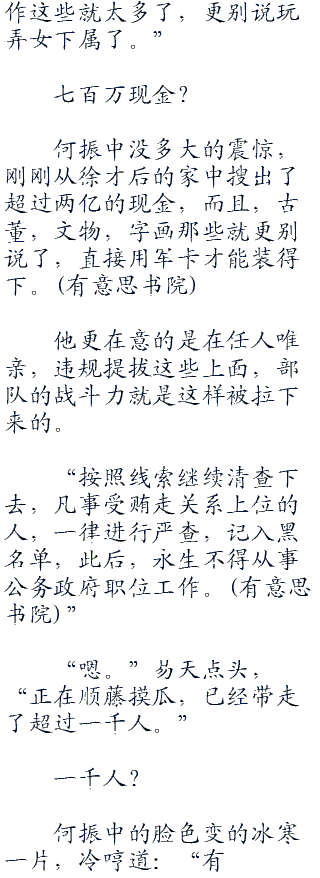 作这些就太多了，更别说玩
弄女下属了。”
七百万现金？
何振中没多大的震惊，
刚刚从徐才后的家中搜出了
超过两亿的现金，而且，古
董，文物，字画那些就更别
说了，直接用军卡才能装得
下。(有意思书院)
他更在意的是在任人唯
亲，违规提拔这些上面，部
队的战斗力就是这样被拉下
来的。
“按照线索继续清查下
去，凡事受贿走关系上位的
人，一律进行严查，记入黑
名单，此后，永生不得从事
公务政府职位工作。(有意思
书院)”
“嗯。”易天点头，
“正在顺藤摸瓜，已经带走
了超过一千人。”
一千人？
何振中的脸色变的冰寒
一片，冷哼道：“有